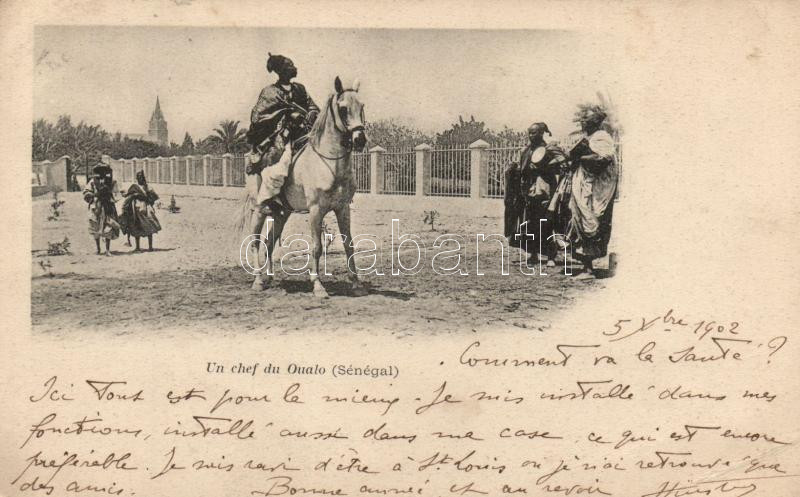 darabanth.com
Un chef du Oualo (Sénégal)
5 Xbre 1902
Comment va la Santé ?
Ici tout est pour le mieux - Je suis installé dans mes
fonctions, installé aussi dans ma case, ce qui est encore
préférable. Je suis ravi d'être à St Louis où je n'ai retrouvé que
des amis. Bonne année et au revoir